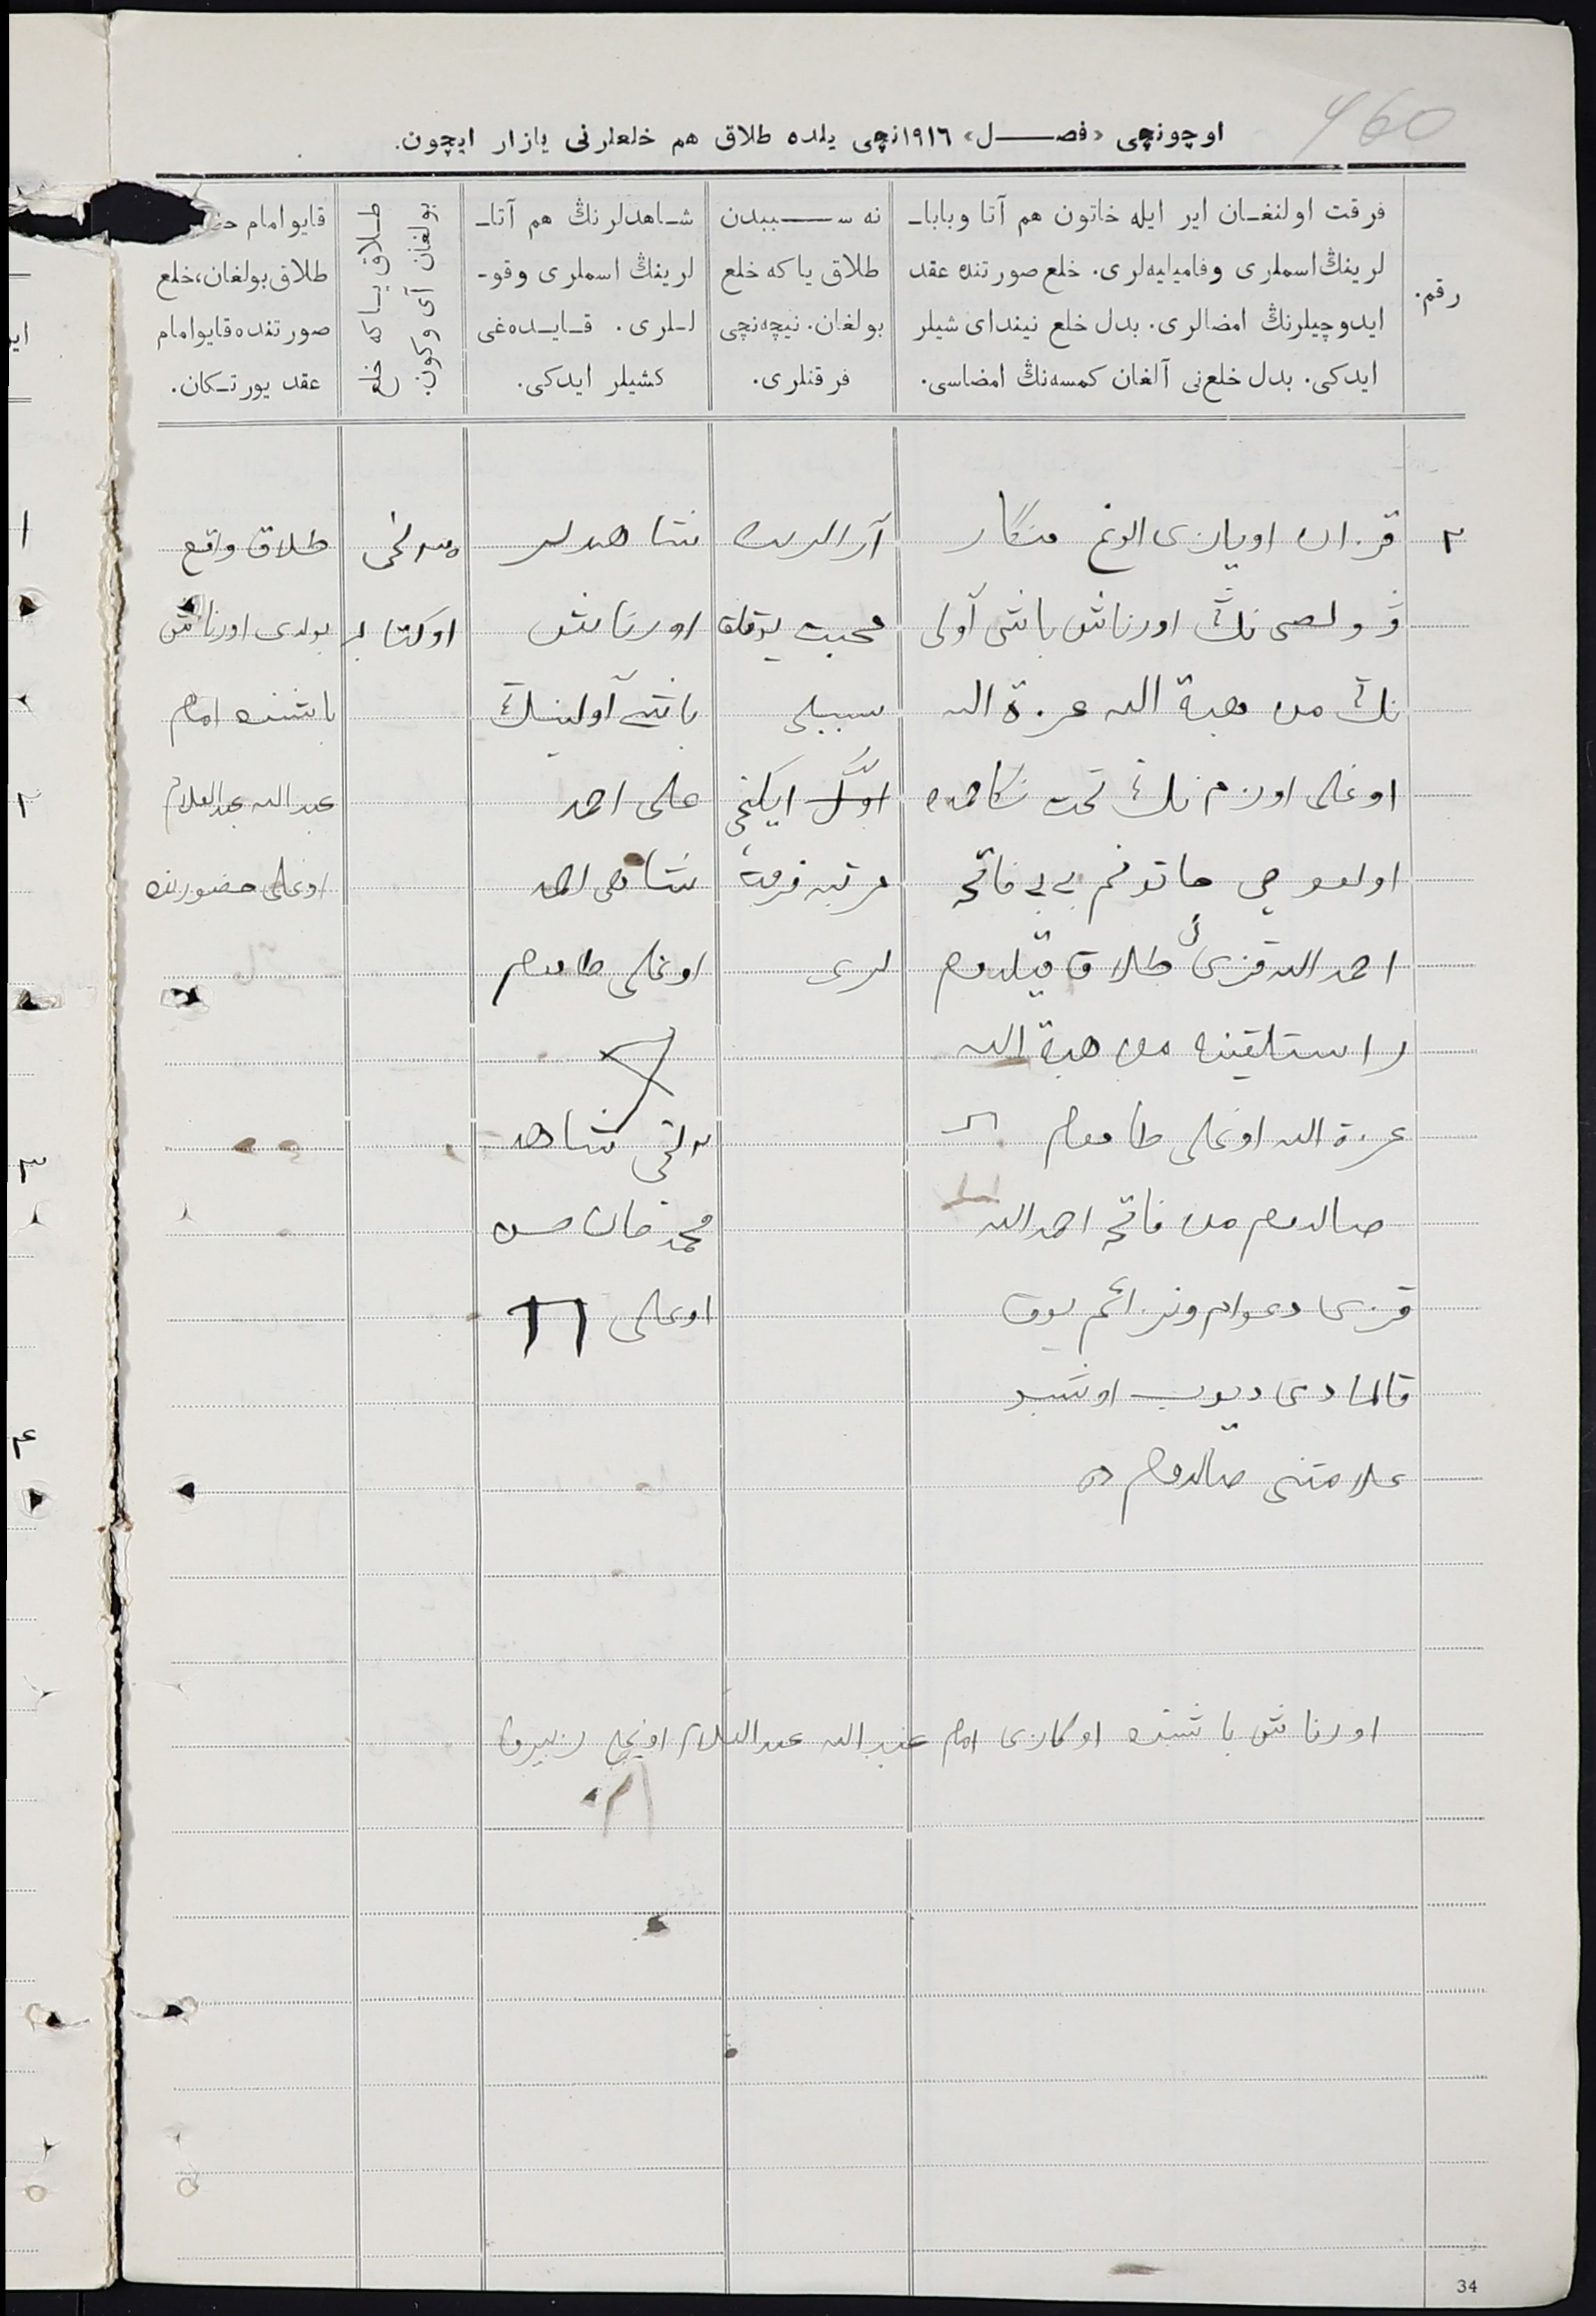 460
اوچونچی «فصل» ١٩١٦نچی یلده طلاق هم خلعلرنی یازار ایچون.
رقم.
فرقت اولنغان ایر ایله خاتون هم آتا وبابا-
لرینڭ اسملری وفامیلیه‌لری. خلع صورتنده عقد
ایدوچیلرنڭ امضالری. بدل خلع نیندای شیلر
ایدکی. بدل خلع‌نی آلغان کمسه‌نڭ امضاسی.
نه سببدن
طلاق یا که خلع
بولغان. نیچه‌نچی
فرقتلری.
شاهدلرنڭ هم آتا-
لرینڭ اسملری وقو-
للری. قایده‌غی
کشیلر ایدکی.
طلاق یا که خلع
بولغان آی وکون.
قایو امام
طلاق بولغان، خلع
صورتنده قایو امام
عقد یورتکان.
٢
قزان اویازی الوغ منگار
ڤولصی نڭ اورناش باشی آولی
نڭ من هبة الله عزة الله
اوغلی اوزم نڭ تحت نکاحمده
اولغوچی خاتونم بی بی فاتحه
احمدالله قزی نی طلاق قیلدم
راستلقینه من هبة الله
عزة الله اوغلی طامغام
صالدم من فاتحه احمدالله
قزی دعوام ونزاعم یوق
قالمادی دیوب اوشبو
علامتنی صالدم
آرالرینده
محبت یوقلق
سببلی
اوّل ایکنچی
مرتبه فرقت
لری
شاهدلر
اورناش
باشی آولینڭ
علی احمد
شاهی احمد
اوغلی طامغام
٢نچی شاهد
محمدخان حسن
اوغلی
اوکتابر
طلاق واقع
بولدی اورناش
باشنده امام
عبدالله عبدالعلام
اوغلی حضورنده
اورناش باشنده اوکازنی امام عبدالله عبدالعلام اوغلی زبیروف
34